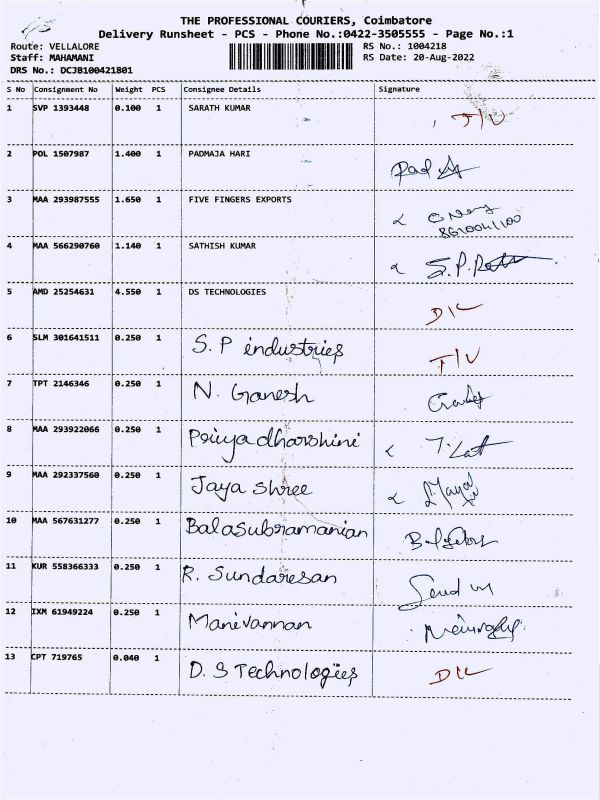 THE PROFESSIONAL COURIERS, Coimbatore
Delivery Runsheet - PCS - Phone No.:0422-3505555 - Page No.:1
Route: VELLALORE RS No.: 1004218
Staff: MAHAMANI RS Date: 20-Aug-2022
DRS No.: DCJB100421801
S No Consignment No Weight PCS Consignee Details Signature
1 SVP 1393448 0.100 1 SARATH KUMAR T/V
2 POL 1507987 1.400 1 PADMAJA HARI Pad
3 MAA 293987555 1.650 1 FIVE FINGERS EXPORTS
4 MAA 566290760 1.140 1 SATHISH KUMAR S.P.
5 AMD 25254631 4.550 1 DS TECHNOLOGIES D/L
6 SLM 301641511 0.250 1 S. P industries T/V
7 TPT 2146346 0.250 1 N. Ganesh
8 MAA 293922066 0.250 1 Priyadharshini
9 MAA 292337560 0.250 1 Jaya shree
10 MAA 567631277 0.250 1 Balasubramanian
11 KUR 558366333 0.250 1 R. Sundaresan
12 IXM 61949224 0.250 1 Manivannan
13 CPT 719765 0.040 1 D. S Technologies D/L